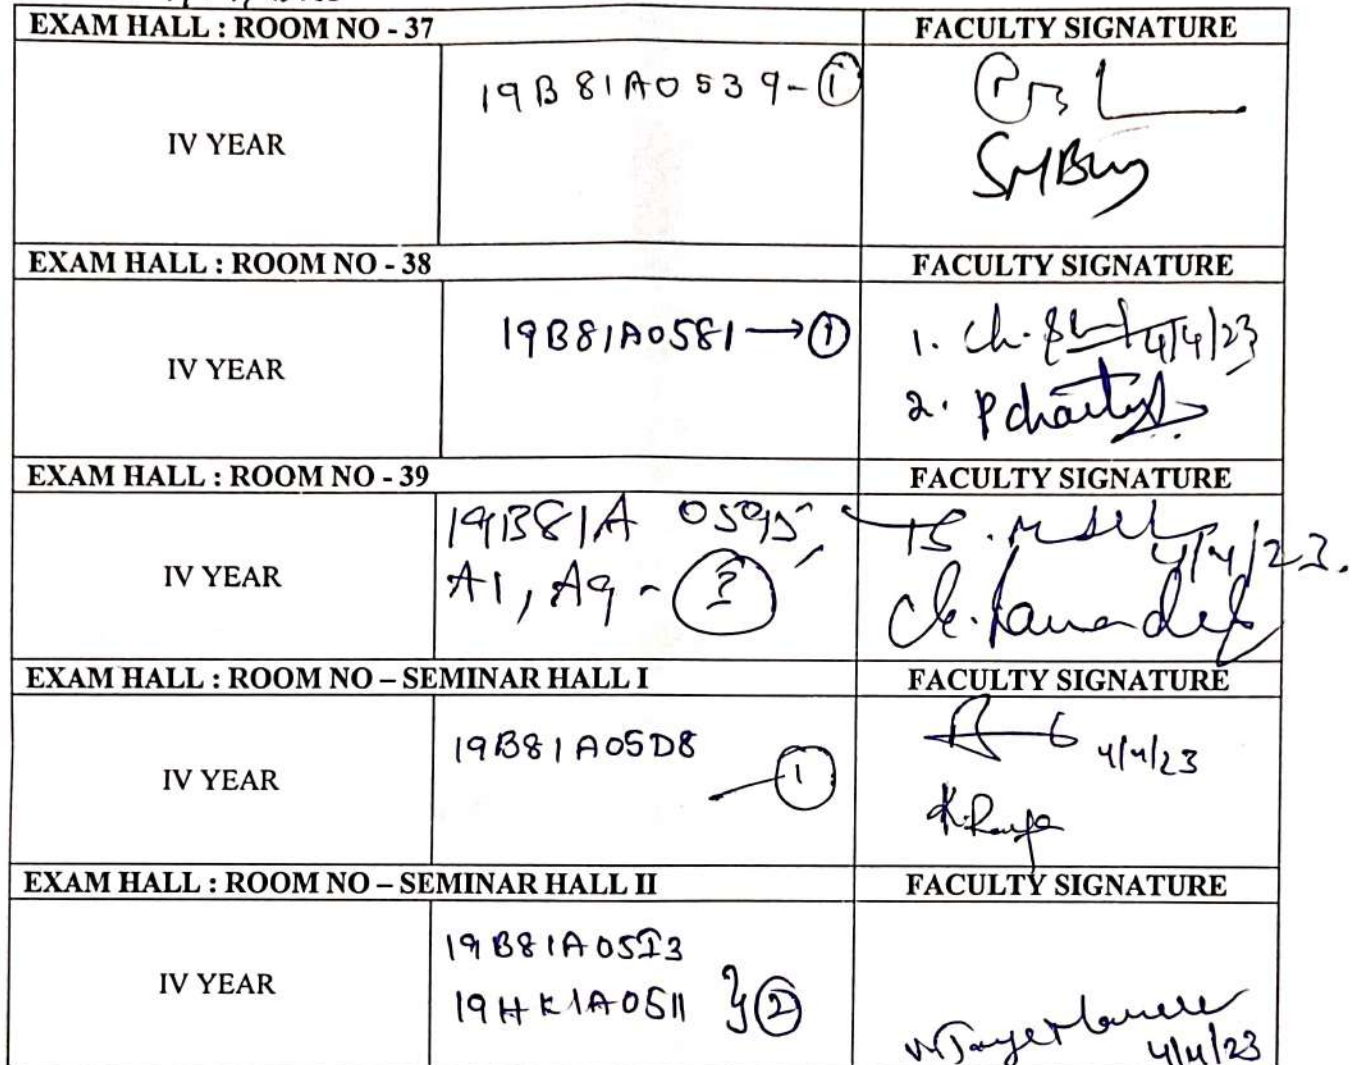 EXAM HALL : ROOM NO - 37 FACULTY SIGNATURE
IV YEAR 19B81A0539-①
EXAM HALL : ROOM NO - 38 FACULTY SIGNATURE
IV YEAR 19B81A0581→① 1. Ch. 4/4/23
2. P
EXAM HALL : ROOM NO - 39 FACULTY SIGNATURE
19B81A 0595, 4/4/23.
IV YEAR A1, A9 - Ch.
EXAM HALL : ROOM NO – SEMINAR HALL I FACULTY SIGNATURE
19B81A05D8 4/4/23
IV YEAR ①
EXAM HALL : ROOM NO – SEMINAR HALL II FACULTY SIGNATURE
19B81A05I3
IV YEAR
19HK1A0511 } ②
4/4/23